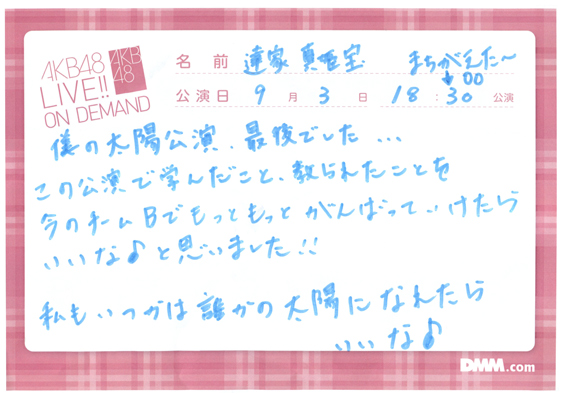 AKB48
LIVE!!
ON DEMAND
AKB
48
名前 達家 真姫宝 まちがえた〜
↓00
公演日 9月3日 18:30公演
僕の太陽公演、最後でした...
この公演で学んだこと、教られたことを
今のチームBでもっともっとがんばっていけたら
いいな♪と思いました!!
私もいつかは誰かの太陽になれたら
いいな♪
DMM.com